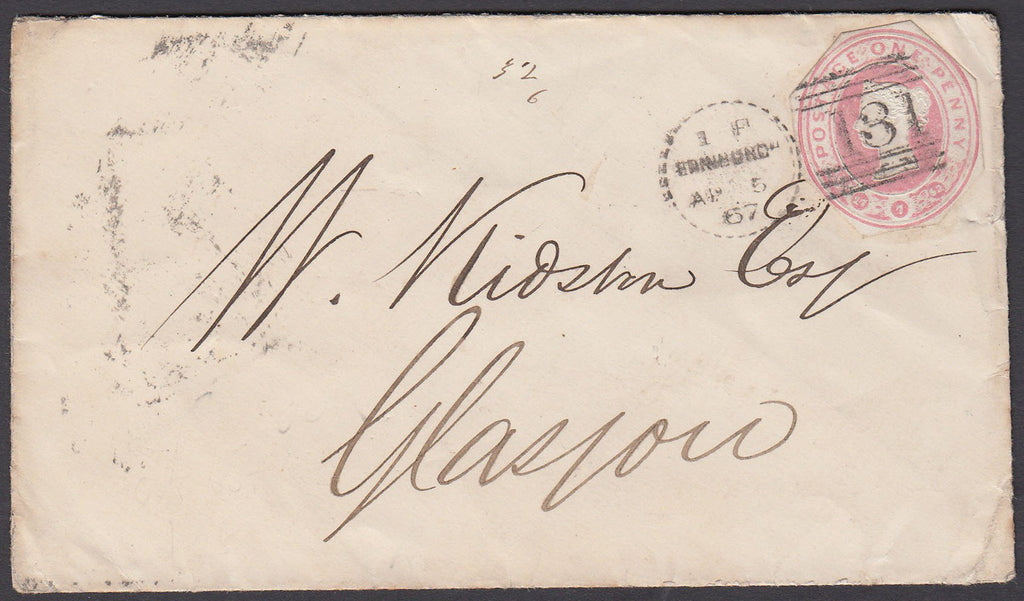 32
6
POSTAGE ONE PENNY
131
1 F
EDINBURGH
AP 5
67
W. Kidston Esq
Glasgow